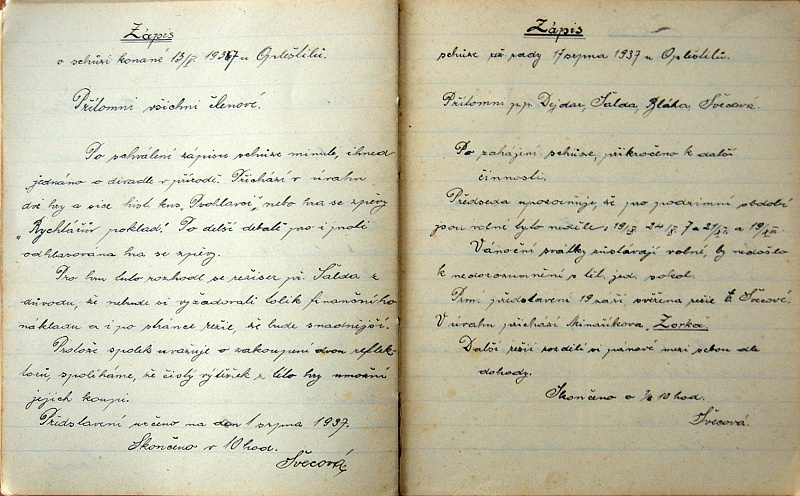 Zápis
o schůzi konané 13/V. 1937 u Opleštilů.
Přítomni všichni členové.
Po schválení zápisu schůze minulé, ihned
jednáno o divadle v přírodě. Přichází v úvahu
dvě hry a sice hist. kus „Psohlavci", nebo hra se zpěvy
„Rychtářův poklad." Po delší debatě pro i proti
odhlasována hra se zpěvy.
Pro hru tuto rozhodl se režiser př. Šalda z
důvodu, že nebude si vyžadovati tolik finančního
nákladu a i po stránce režie, že bude snadnější.
Protože spolek uvažuje o zakoupení dvou reflek-
torů, spoléháme, že čistý výtěžek z této hry umožní
jejich koupi.
Představení určeno na den 1 srpna 1937.
Skončeno v 10 hod.
Švecová
Zápis
schůze rež. rady 17 srpna 1937 u Opleštilů.
Přítomni p.p. Dejdar, Šalda, Bláha, Švecová.
Po zahájení schůze, přikročeno k další
činnosti.
Předseda upozorňuje, že pro podzimní období
jsou volné tyto neděle: 19/IX. 24/X. 7 a 21/XI. a 19/XII.
Vánoční svátky zůstávají volné, by nedošlo
k nedorozumnění s těl. jed. sokol.
Prvn. představení 19 září, svěřena režie Švecové.
V úvahu přichází Mimaříkova, Zorka.
Další režii rozdělí si pánové mezi sebou dle
dohody.
Skončeno o 10 hod.
Švecová.